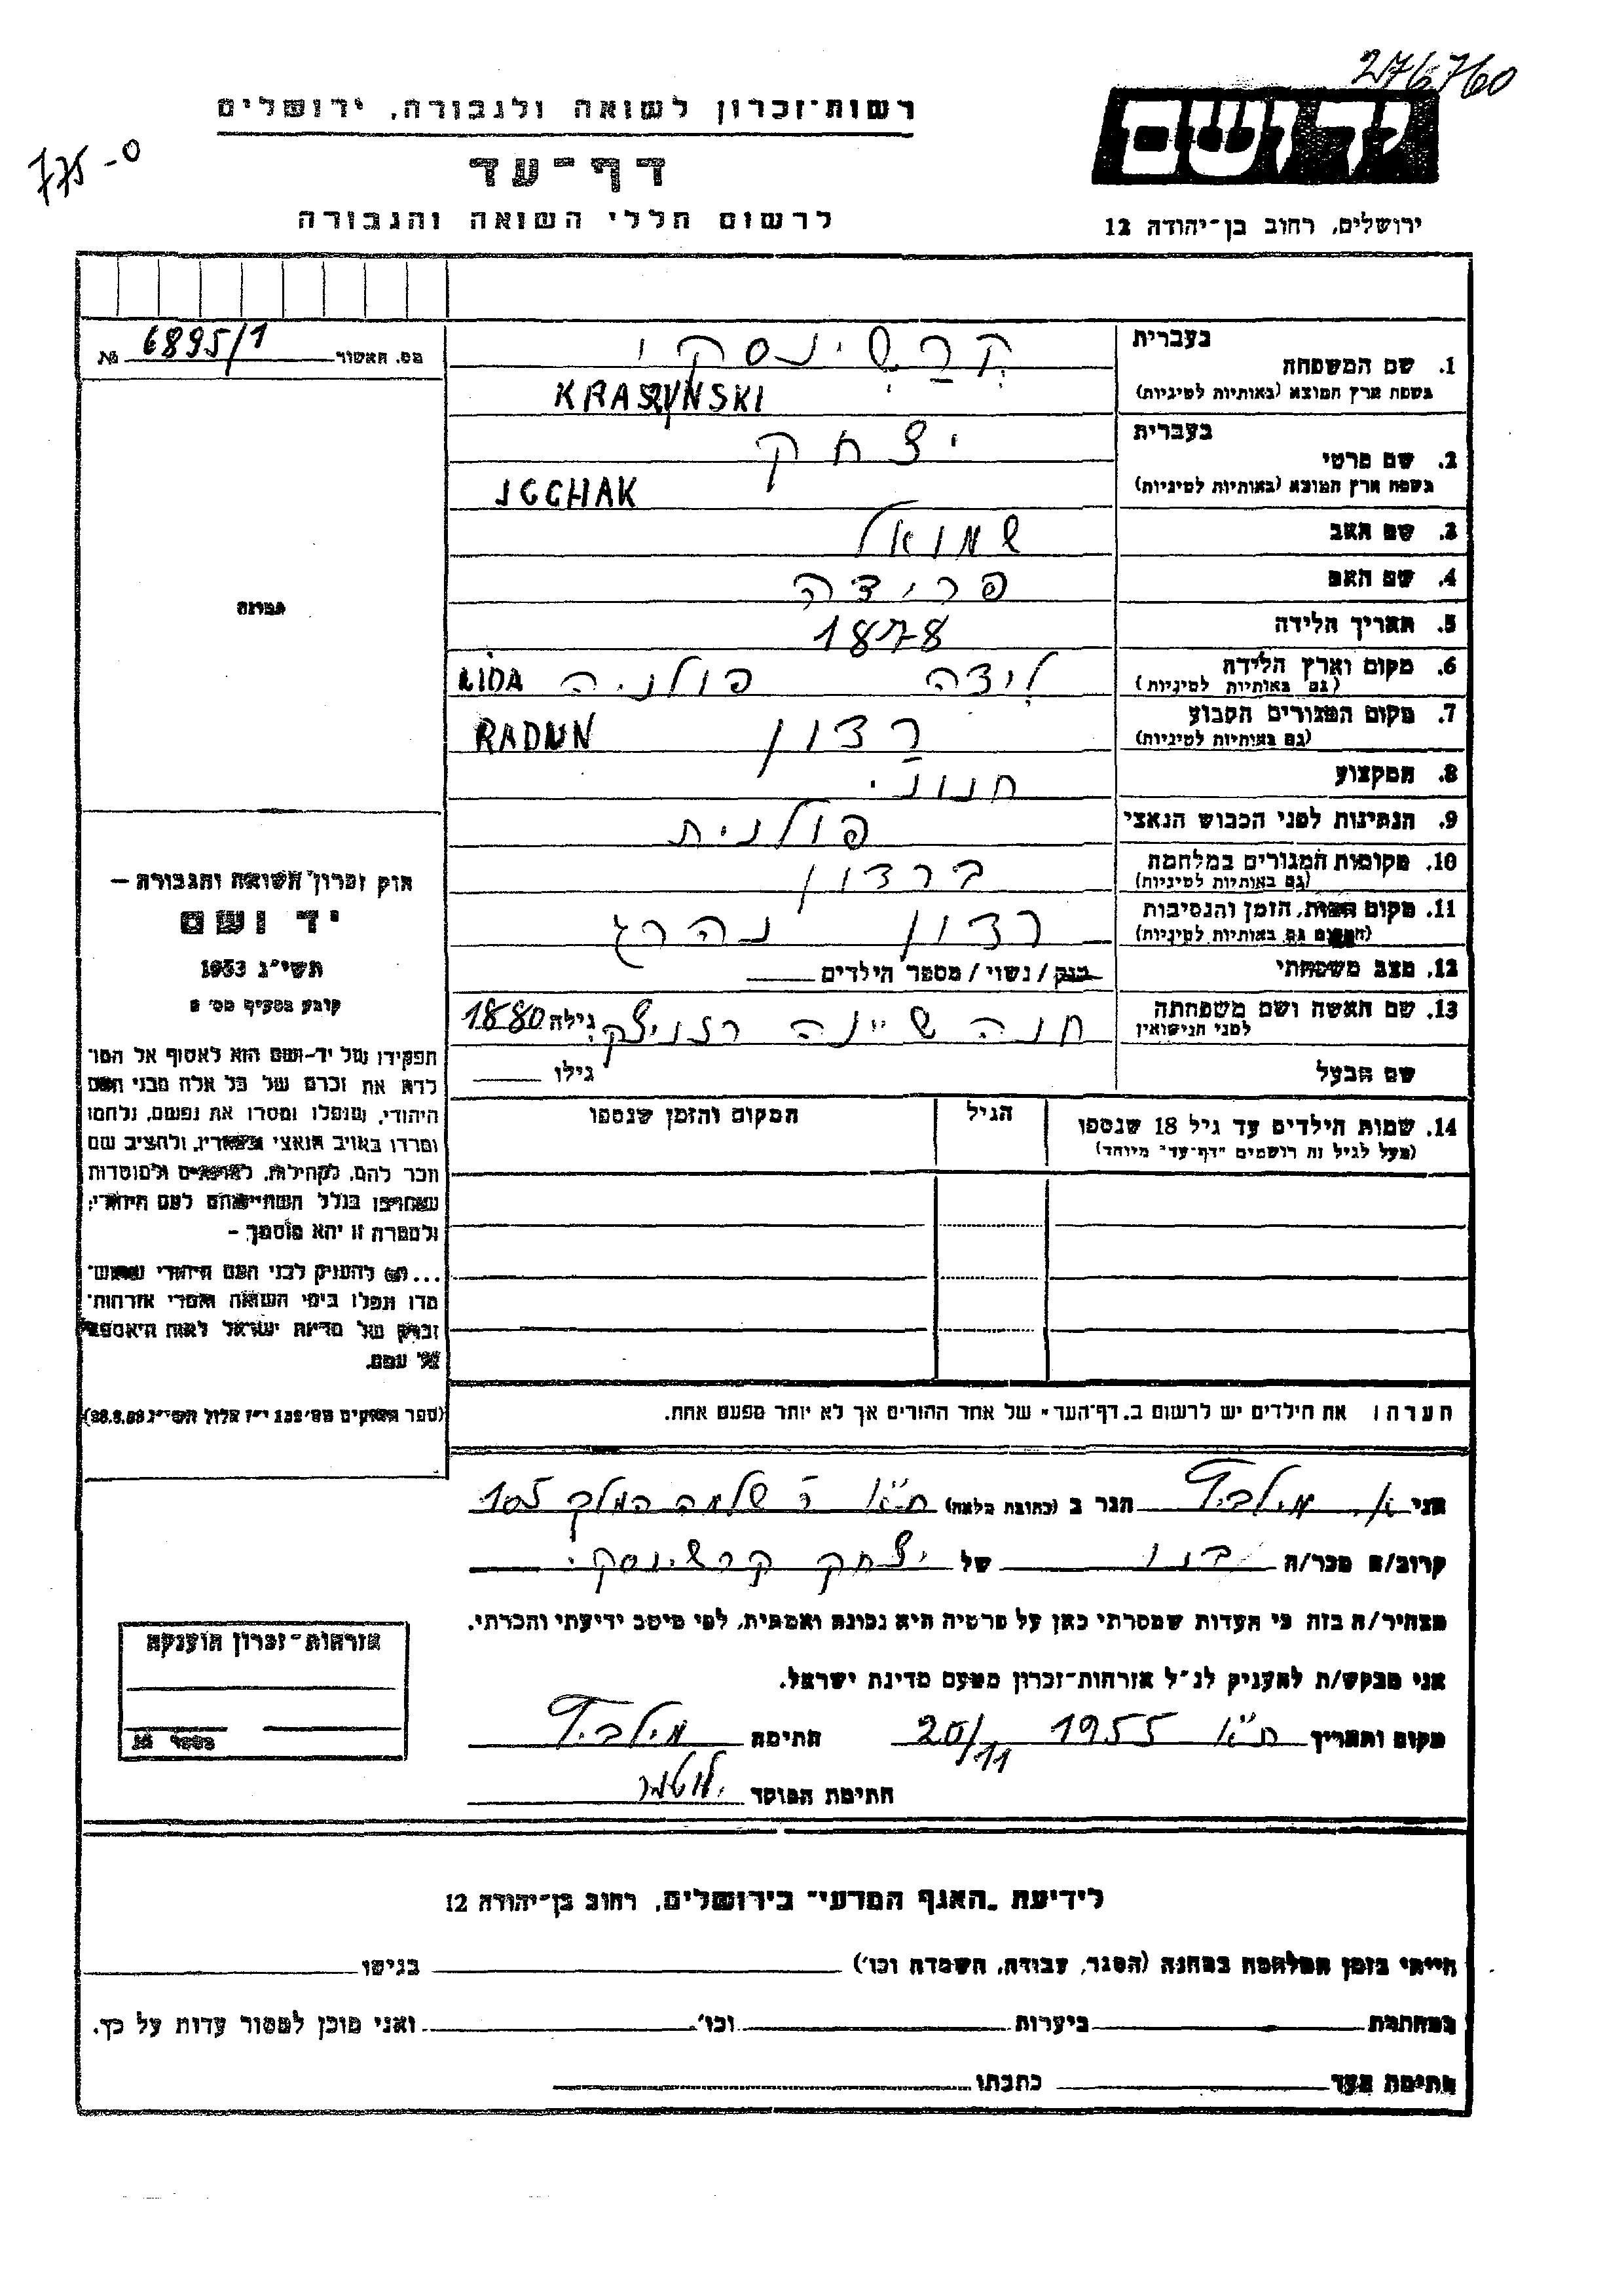 276760
רשות־זכרון לשואה ולגבורה, ירושלים
775-0
דף־עד
לרשום חללי השואה והגבורה
יד ושם
ירושלים, רחוב בן־יהודה 12
מס. האשור № 6895/1
בעברית
1. שם המשפחה קרשינסקי
בשפת ארץ המוצא (באותיות לטיניות) KRASZYNSKI
בעברית
2. שם פרטי יצחק
בשפת ארץ המוצא (באותיות לטיניות) JCCHAK
3. שם האב שמואל
4. שם האם פרידה
5. תאריך הלידה 1878
6. מקום וארץ הלידה לידה פולניה LIDA
(גם באותיות לטיניות)
7. מקום המגורים הקבוע רדון RADUN
(גם באותיות לטיניות)
8. המקצוע חנוני
9. הנתינות לפני הכבוש הנאצי פולנית
10. מקומות המגורים במלחמה ברדון
(גם באותיות לטיניות)
11. מקום המות, הזמן והנסיבות רדון נהרג
(המקום גם באותיות לטיניות)
12. מצב משפחתי רווק / נשוי / מספר הילדים
13. שם האשה ושם משפחתה חנה שיינה רזניצקי גילה 1880
לפני הנישואין
שם הבעל גילו
14. שמות הילדים עד גיל 18 שנספו הגיל המקום והזמן שנספו
(מעל לגיל זה רושמים "דף־עד" מיוחד)
תמונה
חוק זכרון השואה והגבורה —
יד ושם
תשי"ג 1953
קובע בסעיף מס׳
תפקידו של יד-ושם הוא לאסוף אל המו־
לדת את זכרם של כל אלה מבני העם
היהודי, שנפלו ומסרו את נפשם, נלחמו
ומרדו באויב הנאצי ובעוזריו, ולהציב שם
וזכר להם, לקהילות, לארגונים ולמוסדות
שנחרבו בגלל השתייכותם לעם היהודי;
ולמטרה זו יהא מוסמך —
להעניק לבני העם היהודי שהוש־
מדו ונפלו בימי השואה והמרי אזרחות־
זכרון של מדינת ישראל לאות היאספם
אל עמם.
(ספר החוקים מס׳ 132 י"ז אלול תשי"ג 28.8.53)
הערה: את הילדים יש לרשום ב„דף־העד" של אחד ההורים אך לא יותר מפעם אחת.
אני א. מילביד הגר ב (כתובת מלאה) ת"א ר שלמה המלך 105
קרוב/ה מכר/ה בנו של יצחק קרשינסקי
מצהיר/ה בזה כי העדות שמסרתי כאן על פרטיה היא נכונה ואמתית, לפי מיטב ידיעתי והכרתי.
אני מבקש/ת להעניק לנ"ל אזרחות־זכרון מטעם מדינת ישראל.
מקום ותאריך ת"א 1955 20/11 חתימה מילביד
חתימת המוסד
אזרחות־זכרון הוענקה
מספר
לידיעת „האגף המדעי" בירושלים, רחוב בן־יהודה 12
הייתי בזמן המלחמה במחנה (הסגר, עבודה, השמדה וכו׳) בגיטו
במחתרת ביערות וכו׳ ואני מוכן למסור עדות על כך.
חתימת העד כתבתו